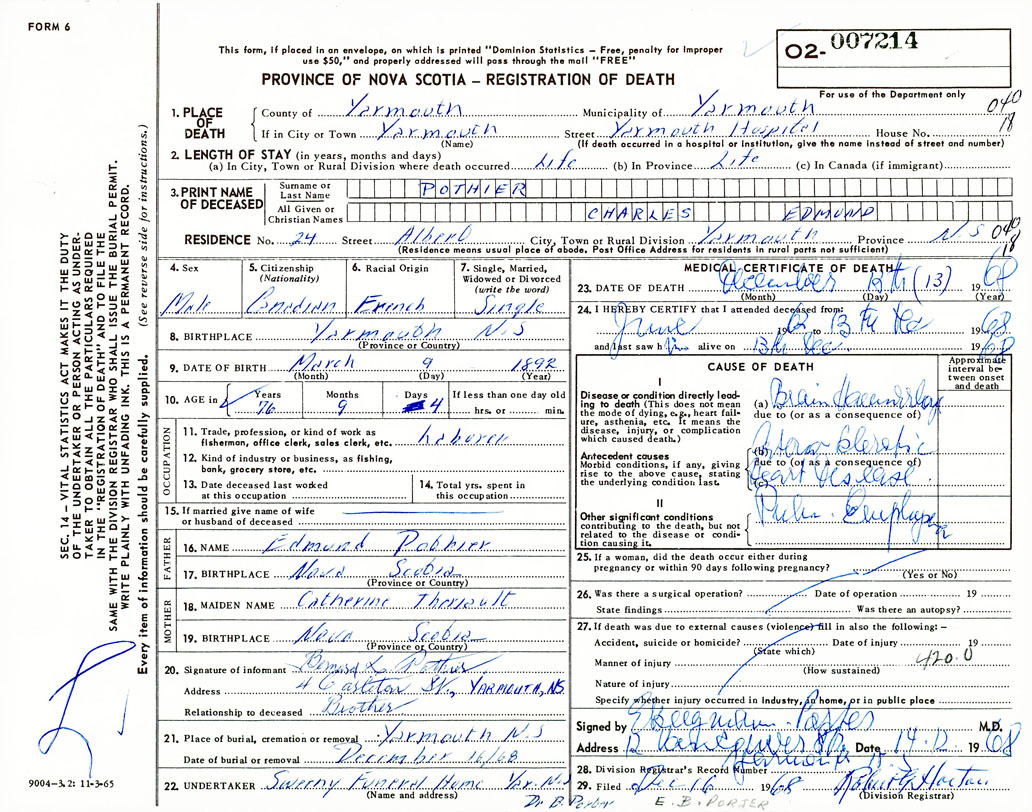 FORM 6
This form, if placed in an envelope, on which is printed "Dominion Statistics – Free, penalty for improper
use $50," and properly addressed will pass through the mail "FREE"
PROVINCE OF NOVA SCOTIA – REGISTRATION OF DEATH
O2- 007214
For use of the Department only
040
18
SEC. 14 – VITAL STATISTICS ACT MAKES IT THE DUTY
OF THE UNDERTAKER OR PERSON ACTING AS UNDER-
TAKER TO OBTAIN ALL THE PARTICULARS REQUIRED
IN THE "REGISTRATION OF DEATH" AND TO FILE THE
SAME WITH THE DIVISION REGISTRAR WHO SHALL ISSUE THE BURIAL PERMIT.
WRITE PLAINLY WITH UNFADING INK. THIS IS A PERMANENT RECORD.
Every item of information should be carefully supplied. (See reverse side for instructions.)
1. PLACE OF DEATH
County of Yarmouth Municipality of Yarmouth
If in City or Town Yarmouth Street Yarmouth Hospital House No.
(Name) (If death occurred in a hospital or institution, give the name instead of street and number)
2. LENGTH OF STAY (in years, months and days)
(a) In City, Town or Rural Division where death occurred Life (b) In Province Life (c) In Canada (if immigrant)
3. PRINT NAME OF DECEASED
Surname or Last Name POTHIER
All Given or Christian Names CHARLES EDMUND
RESIDENCE No. 24 Street Albert City, Town or Rural Division Yarmouth Province N.S 040
18
(Residence means usual place of abode. Post Office Address for residents in rural parts not sufficient)
4. Sex Male
5. Citizenship (Nationality) Canadian
6. Racial Origin French
7. Single, Married, Widowed or Divorced (write the word) Single
8. BIRTHPLACE Yarmouth N.S
(Province or Country)
9. DATE OF BIRTH March 9 1892
(Month) (Day) (Year)
10. AGE in Years 76 Months 9 Days 4 If less than one day old hrs. or min.
OCCUPATION
11. Trade, profession, or kind of work as
fisherman, office clerk, sales clerk, etc. Laborer
12. Kind of industry or business, as fishing,
bank, grocery store, etc.
13. Date deceased last worked
at this occupation
14. Total yrs. spent in
this occupation
15. If married give name of wife
or husband of deceased
FATHER
16. NAME Edmund Pothier
17. BIRTHPLACE Nova Scotia
(Province or Country)
MOTHER
18. MAIDEN NAME Catherine Theriault
19. BIRTHPLACE Nova Scotia
(Province or Country)
20. Signature of informant Bernard L. Pothier
Address 4 Carleton St., YARMOUTH, NS
Relationship to deceased Brother
21. Place of burial, cremation or removal Yarmouth N.S
Date of burial or removal December 16/68
22. UNDERTAKER Sweeny Funeral Home Yar. N.S
(Name and address)
MEDICAL CERTIFICATE OF DEATH
23. DATE OF DEATH December 13th (13) 1968
(Month) (Day) (Year)
24. I HEREBY CERTIFY that I attended deceased from:
June 19 to 13th Dec 1968
and last saw him alive on 13th Dec. 1968
CAUSE OF DEATH
Approximate interval between onset and death
I
Disease or condition directly lead-
ing to death (This does not mean
the mode of dying, e.g., heart fail-
ure, asthenia, etc. It means the
disease, injury, or complication
which caused death.)
(a) Brain Haemorrhage
due to (or as a consequence of)
Antecedent causes
Morbid conditions, if any, giving
rise to the above cause, stating
the underlying condition last.
(b) Arteriosclerotic
due to (or as a consequence of)
(c) Heart Disease
II
Other significant conditions
contributing to the death, but not
related to the disease or condi-
tion causing it.
Pulm.
25. If a woman, did the death occur either during
pregnancy or within 90 days following pregnancy?
(Yes or No)
26. Was there a surgical operation? Date of operation 19
State findings Was there an autopsy?
27. If death was due to external causes (violence) fill in also the following: –
Accident, suicide or homicide? Date of injury 19
(State which)
Manner of injury 420.0
(How sustained)
Nature of injury
Specify whether injury occurred in industry, in home, or in public place
Signed by Porter M.D.
Address Vancouver St. Date 14.12 1968
Yarmouth N S
28. Division Registrar's Record Number
29. Filed Dec 16 1968 Robert F. Horton
(Division Registrar)
9004-3.2: 11-3-65
Dr B. Porter E. B. PORTER